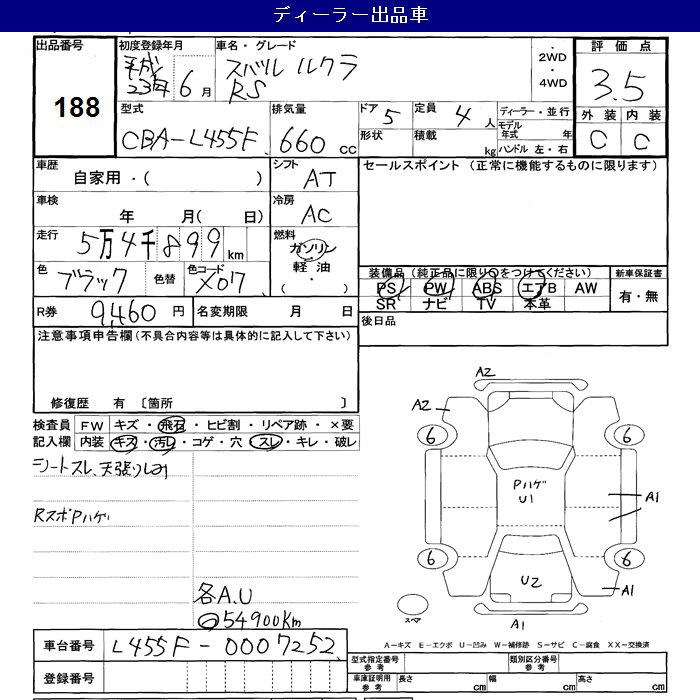 ディーラー出品車
出品番号
188
初度登録年月
平成23年 6月
車名・グレード
スバル ルクラ
RS
・2WD
・4WD
評価点
3.5
外装 内装
C C
型式
CBA-L455F
排気量
660 cc
ドア 5
形状
定員 4 人
積載 kg
ディーラー・並行
モデル年式 年
ハンドル 左・右
車歴
自家用・( )
シフト
AT
車検
年 月( 日)
冷房
AC
走行
5万4千899km
燃料
ガソリン
軽油
・( )
色
ブラック
色替
色コード
X07
R券 9,460 円
名変期限 月 日
セールスポイント (正常に機能するものに限ります)
装備品 (純正品に限り○をつけてください)
PS PW ABS エアB AW
SR ナビ TV 本革
新車保証書
有・無
後日品
注意事項申告欄(不具合内容等は具体的に記入して下さい)
修復歴 有 〔箇所 〕
検査員記入欄
FW キズ・飛石・ヒビ割・リペア跡・×要
内装 キズ・汚れ・コゲ・穴・スレ・キレ・破レ
シートスレ、天張りしみ
RスポPハゲ
各A.U
54900Km
A2
A2
6
6
PハゲU1
A1
6
6
U2
A1
スペア
A1
A-キズ E-エクボ U-凹み W-補修跡 S-サビ C-腐食 XX-交換済
車台番号 L455F-0007252
登録番号
型式指定番号 参考
類別区分番号 参考
車庫証明用 参考
長さ cm
幅 cm
高さ cm